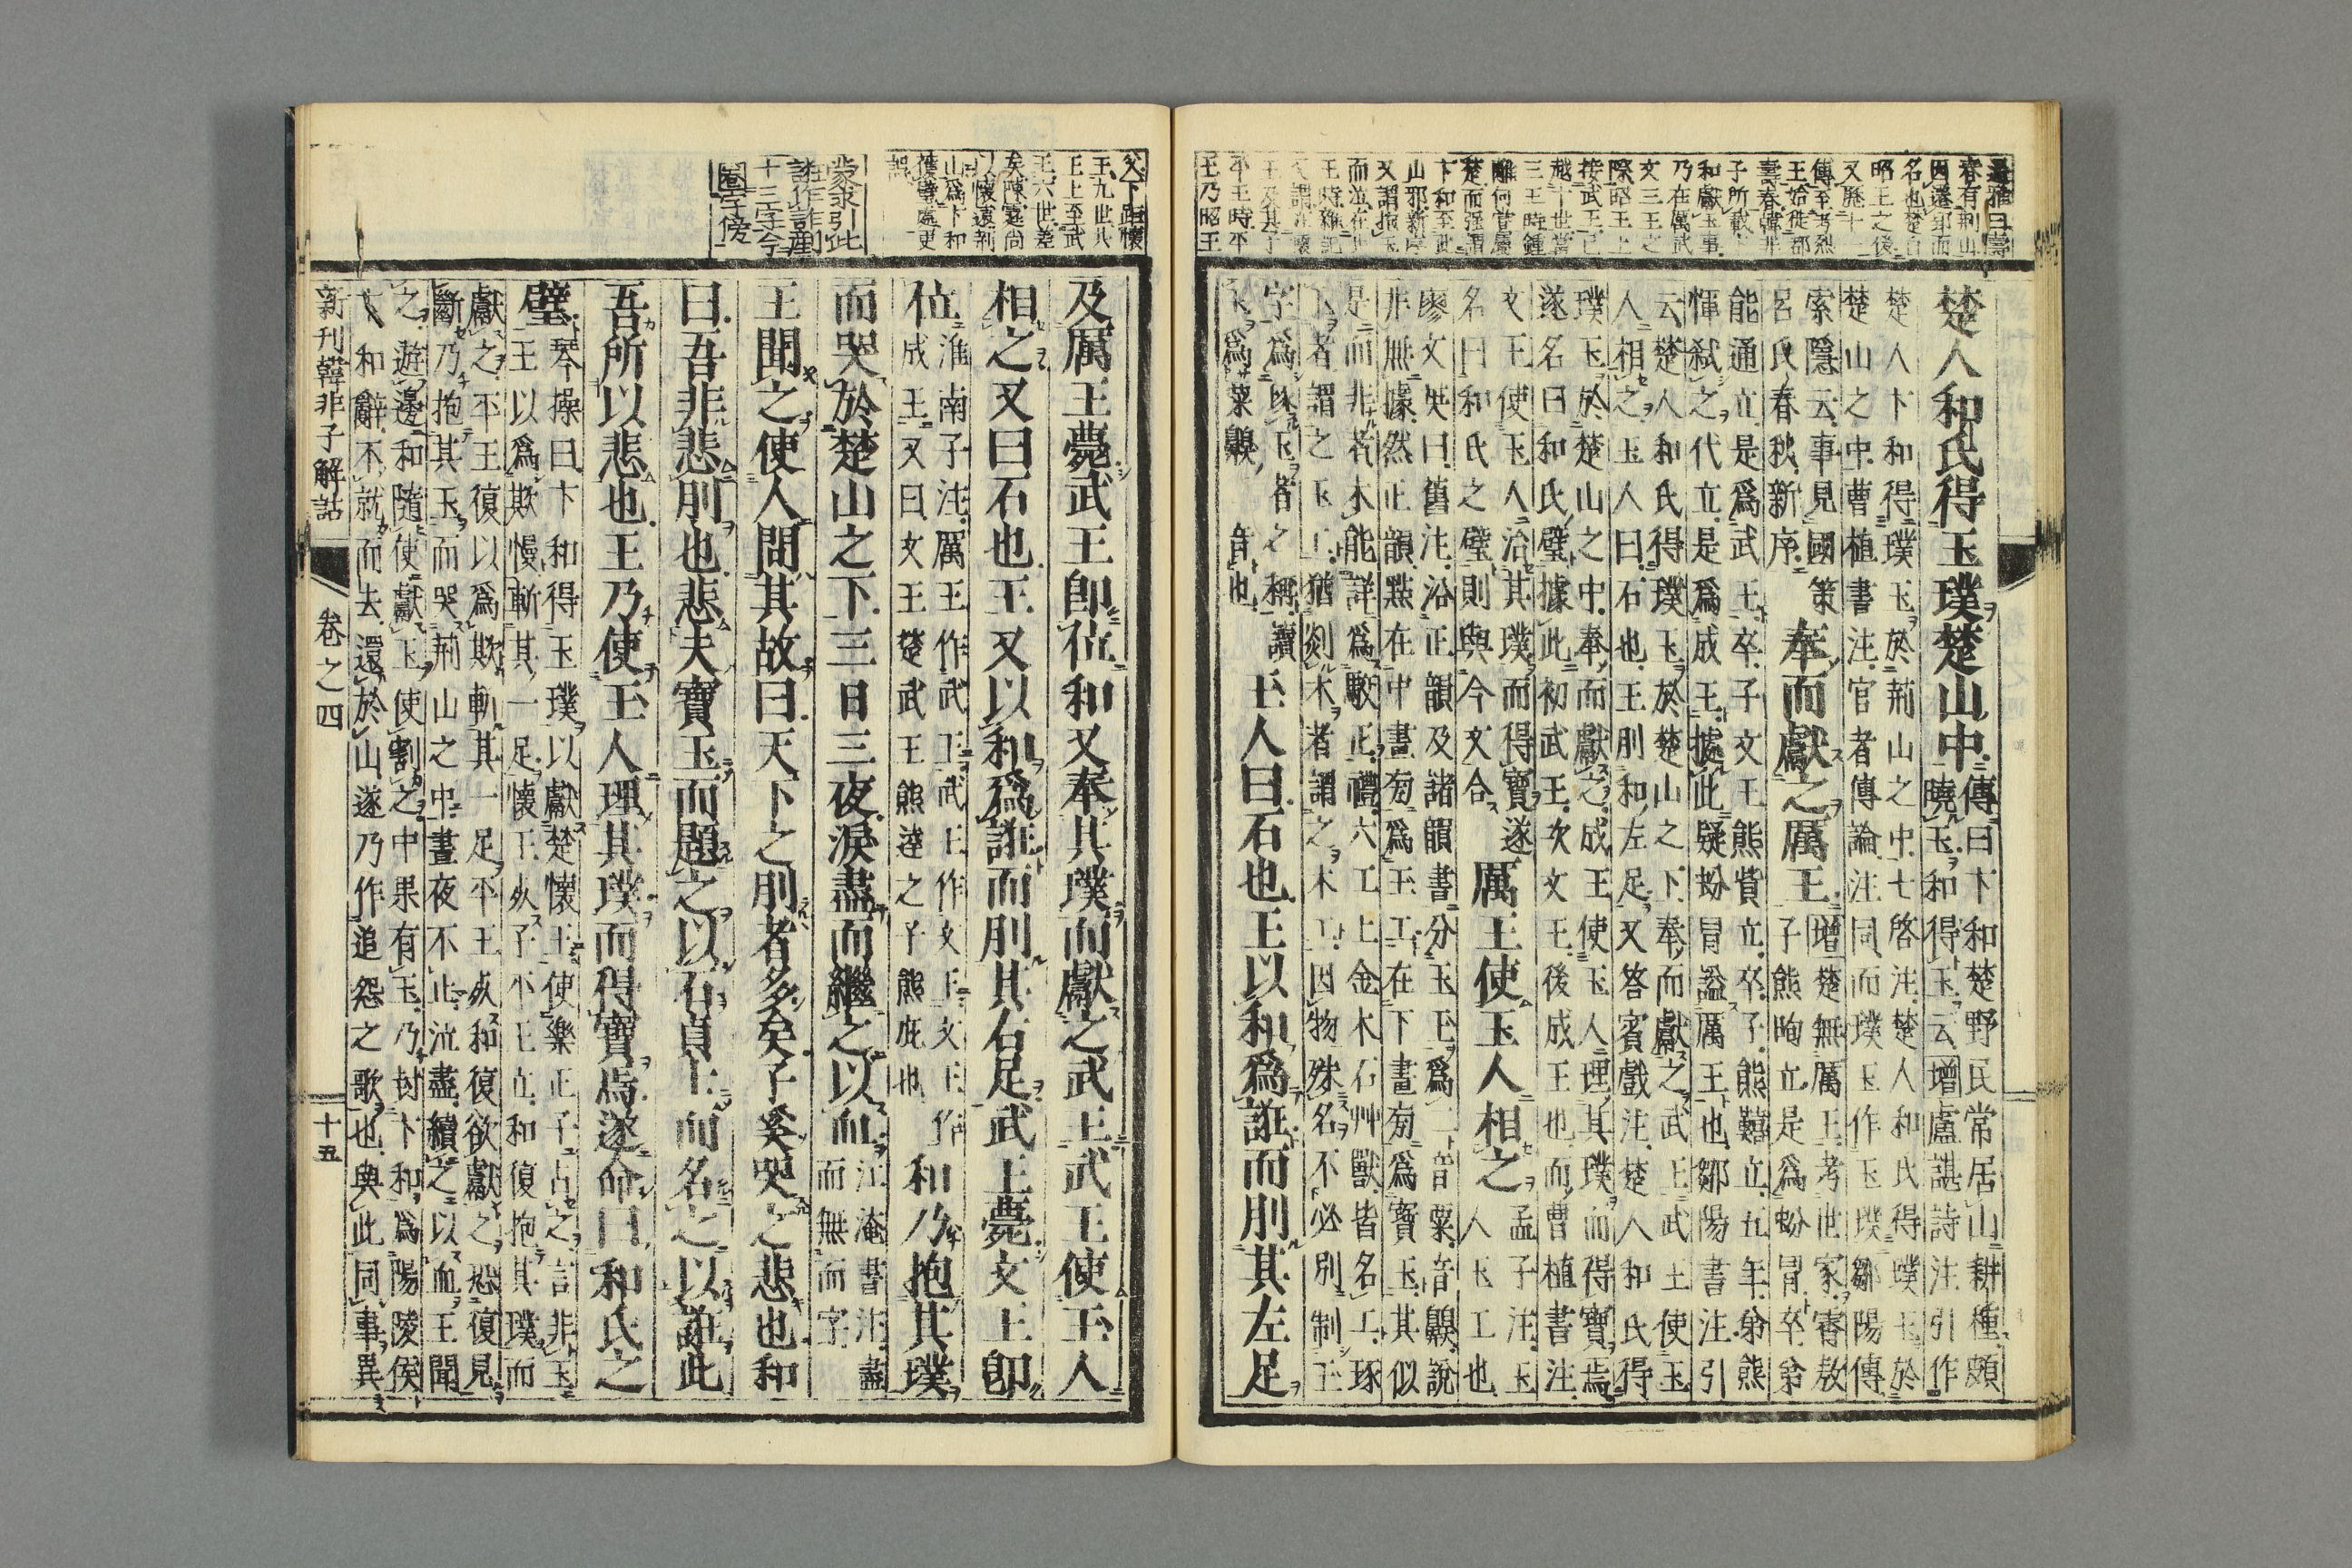 通雅曰壽
春有荊山
因遷郢而
名也楚自
昭王之後
又歷十一
傳至考烈
王始徙都
壽春韓非
子所載卞
和獻玉事
乃在厲武
文三王之
際昭王上
接武王已
越十世當
三王時鍾
離何嘗屬
楚而强謂
卞和至此
山邪新序
又謂抱玉
而泣在共
王時雜記
又謂在懷
王及其子
平王時平
王乃昭王
楚人和氏得玉璞楚山中
傳曰卞和楚野民常居山耕種頗
曉玉和得玉云增盧諶詩注引作
楚人卞和得璞玉於荊山之中七啓注楚人和氏得璞玉於
楚山之中曹植書注官者傳論注同而璞玉作玉璞鄒陽傳
索隱云事見國策
呂氏春秋新序
奉而獻之厲王
增楚無厲王考世家霄敖
子熊眴立是爲蚡冒卒弟
能通立是爲武王卒子文王熊貲立卒子熊囏立五年弟熊
惲弑之代立是爲成王據此疑蚡冒謚厲王也鄒陽書注引
云楚人和氏得璞玉於楚山之下奉而獻之武王武王使玉
人相之玉人曰石也王刖和左足又答賓戲注楚人和氏得
璞玉於楚山之中奉而獻之成王使玉人理其璞而得寶焉
遂名曰和氏璧據此初武王次文王後成王也而曹植書注
文王使玉人治其璞而得寶遂
名曰和氏之璧則與今文合
厲王使玉人相之
孟子注玉
人玉工也
廖文英曰舊注沿正韻及諸韻書分玉玊爲二音粟音齅說
非無據然正韻點在中畫旁爲玊工在下畫旁爲寶玉其似
是而非者未能詳爲駁正禮六工上金木石艸獸皆名工琢
玉者謂之玉工猶剡木者謂之木工因物殊名不必別制玊
字爲琢玉者之稱讀
玉爲粟齅音也
玉人曰石也王以和爲誑而刖其左足
父下距懷
王九世共
王上至武
王六世差
矣陳霆尚
以懷遠荊
山爲卞和
獲璞處更
誤
蒙求引此
及厲王薨武王卽位和又奉其璞而獻之武王武王使玉人
相之又曰石也王又以和爲誑而刖其右足武王薨文王卽
位
淮南子注厲王作武王武王作文王文王作
成王又曰文王楚武王熊達之子熊疵也
和乃抱其璞
而哭於楚山之下三日三夜淚盡而繼之以血
江淹書注盡
而無而字
王聞之使人問其故曰天下之刖者多矣子奚哭之悲也和
曰吾非悲刖也悲夫寶玉而題之以石貞士而名之以誑此
吾所以悲也王乃使玉人理其璞而得寶焉遂命曰和氏之
璧
琴操曰卞和得玉璞以獻楚懷王使樂正子占之言非玉
王以爲欺慢斬其一足懷王死子平王立和復抱其璞而
獻之平王復以爲欺斬其一足平王死和復欲獻之恐復見
斷乃抱其玉而哭荊山之中晝夜不止泣盡續之以血王聞
之遊邊和隨使獻玉使割之中果有玉乃封卞和爲陽陵侯
卞和辭不就而去還於山遂乃作追怨之歌也與此同事異
新刊韓非子解詁 卷之四 十五